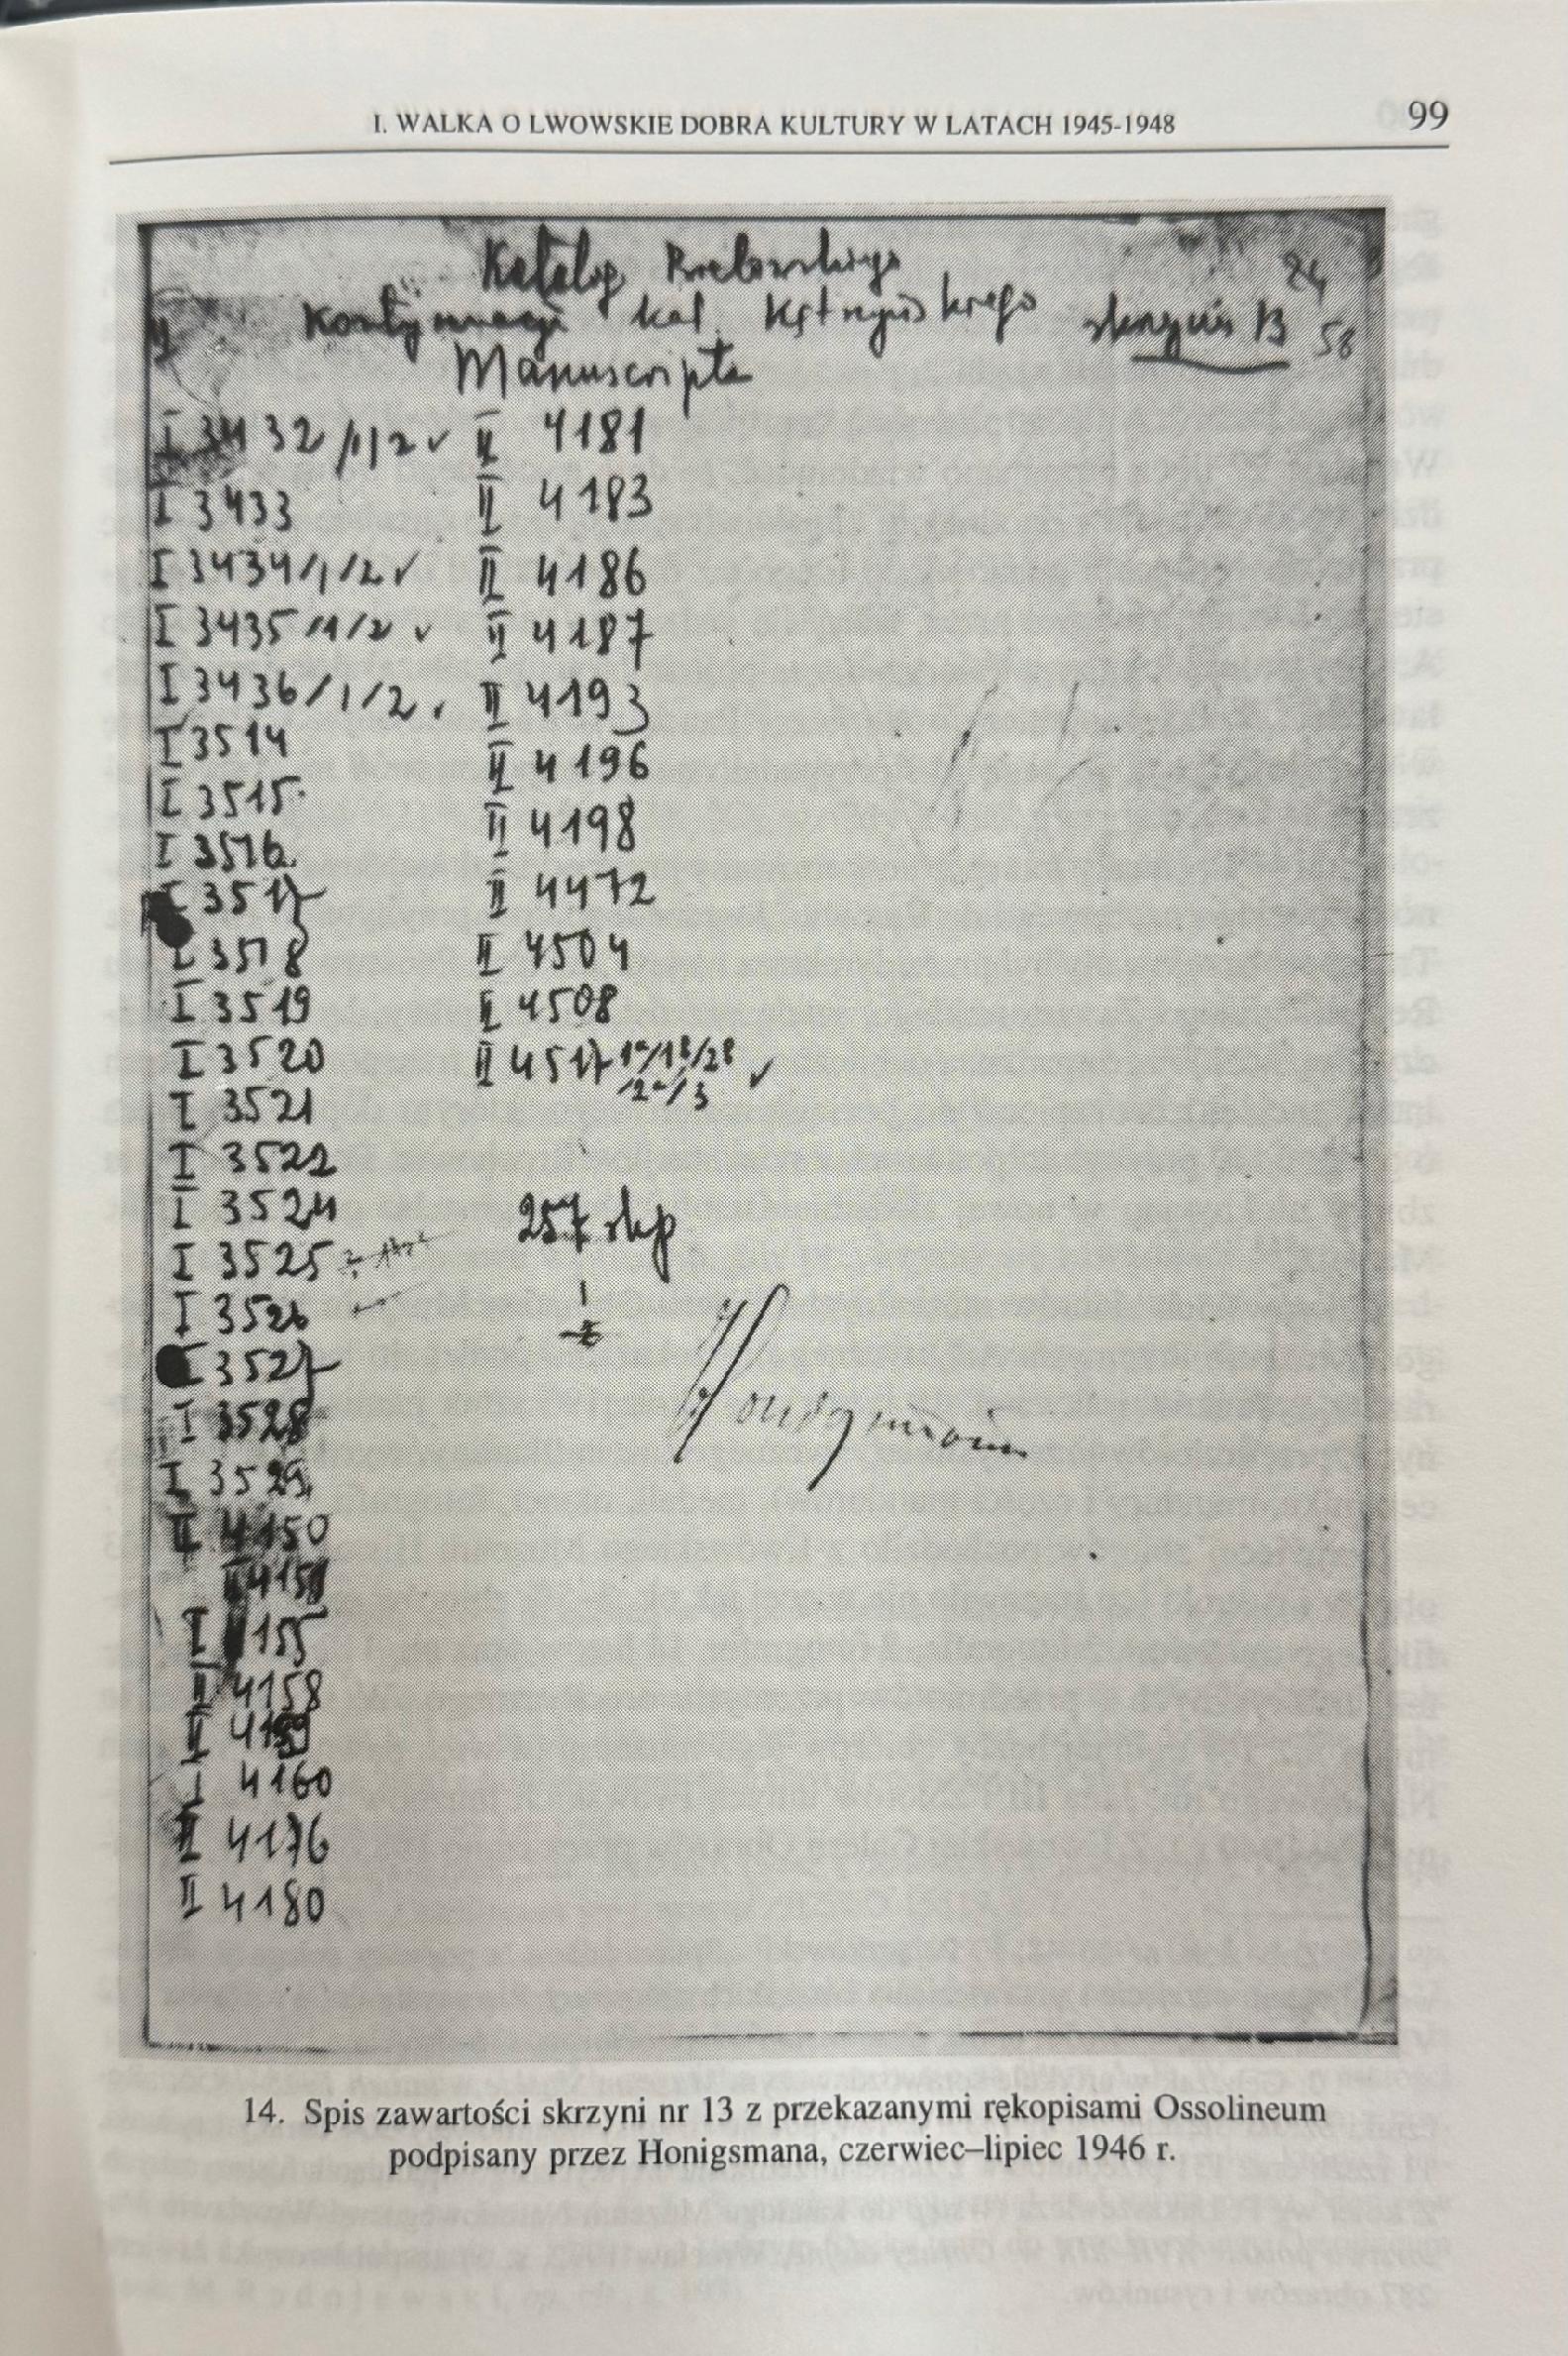 I. WALKA O LWOWSKIE DOBRA KULTURY W LATACH 1945-1948 99
Katalog Bielowskiego 24
Kontynuacja kat. Kętrzyńskiego skrzynia 13 58
Manuscripta
I 3432/1/2 ✓ II 4181
I 3433 II 4183
I 3434/1/2 ✓ II 4186
I 3435/1/2 ✓ II 4187
I 3436/1/2 ✓ II 4193
I 3514 II 4196
I 3515 II 4198
I 3516 II 4472
I 3517 II 4504
I 3518 II 4508
I 3519 II 4517 1a/1b/2b ✓
I 3520 /2a/3
I 3521
I 3522
I 3524 257
I 3525
I 3526
I 3527
I 3528
I 3529
II 4150
4151
155
4158
4159
4160
II 4176
II 4180
14. Spis zawartości skrzyni nr 13 z przekazanymi rękopisami Ossolineum
podpisany przez Honigsmana, czerwiec–lipiec 1946 r.